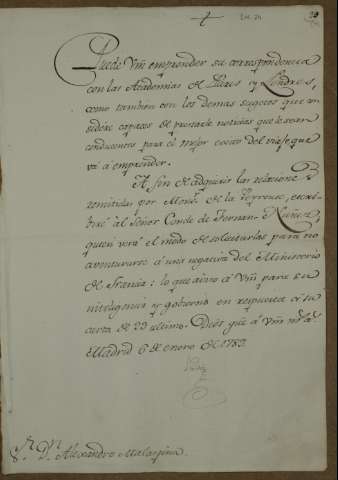 Puede Vm emprender su correspondencia
con las Academias de Paris y Londres,
como tambien con los demas sugetos que con
sidere capaces de prestarle noticias que le sean
conducentes para el mejor exito del viaje que
vá á emprender.
A fin de adquirir las relaciones
remitidas por Monsr. de la Peyrouse, escri
biré al Señor Conde de Fernan-Nuñez
quien verá el modo de solicitarlas para no
aventurarse á una negativa del Ministerio
de Francia: lo que aviso á Vm para su
inteligencia y gobierno en respuesta á su
carta de 29 ultimo. Dios gue á Vm ms as
Madrid 6 de enero de 1789.
Sr. Dn. Alexandro Malaspina.